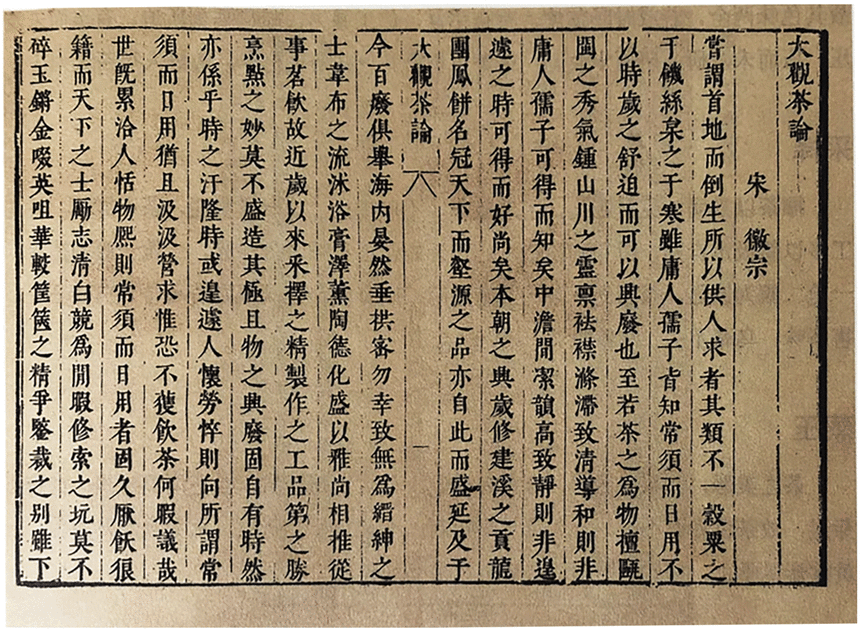 大觀茶論
宋　徽宗
嘗謂首地而倒生所以供人求者其類不一穀粟之
于饑絲枲之于寒雖庸人孺子皆知常須而日用不
以時歲之舒迫而可以興廢也至若茶之爲物擅甌
閩之秀氣鍾山川之靈禀袪襟滌滯致清導和則非
庸人孺子可得而知矣中澹閒潔韻高致靜則非遑
遽之時可得而好尚矣本朝之興歲修建溪之貢龍
團鳳餅名冠天下而壑源之品亦自此而盛延及于
大觀茶論　一
今百廢俱舉海内晏然垂拱密勿幸致無爲縉紳之
士韋布之流沐浴膏澤薰陶德化盛以雅尚相推從
事茗飲故近歲以來采擇之精製作之工品第之勝
烹點之妙莫不盛造其極且物之興廢固自有時然
亦係乎時之汗隆時或遑遽人懷勞悴則向所謂常
須而日用猶且汲汲營求惟恐不獲飲茶何暇議哉
世既累洽人恬物熈則常須而日用者固久厭飫狠
籍而天下之士勵志清白競爲閒暇修索之玩莫不
碎玉鏘金啜英咀華較筐篋之精爭鑒裁之别雖下